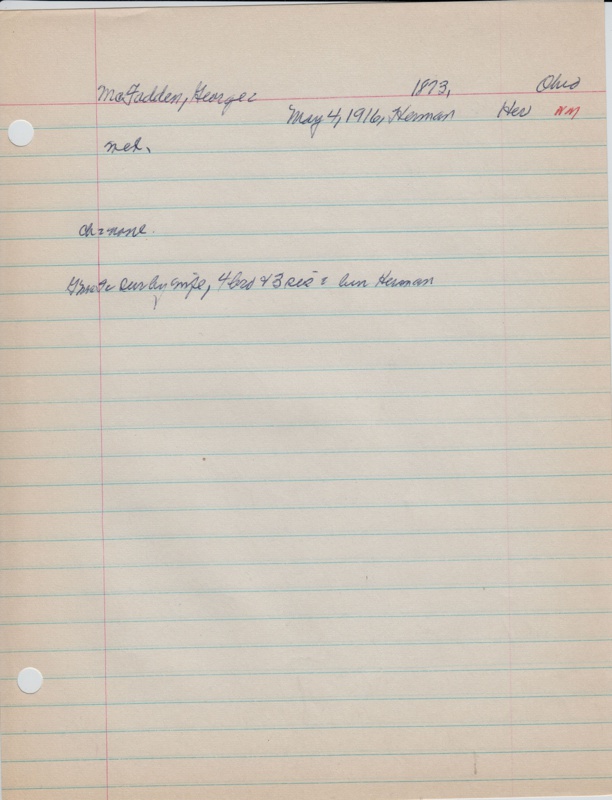 McFadden, George 1873, Ohio
May 4, 1916, Herman Her NM
ch = none.
sur by wife, 4 bro & 3 sis = bur Herman